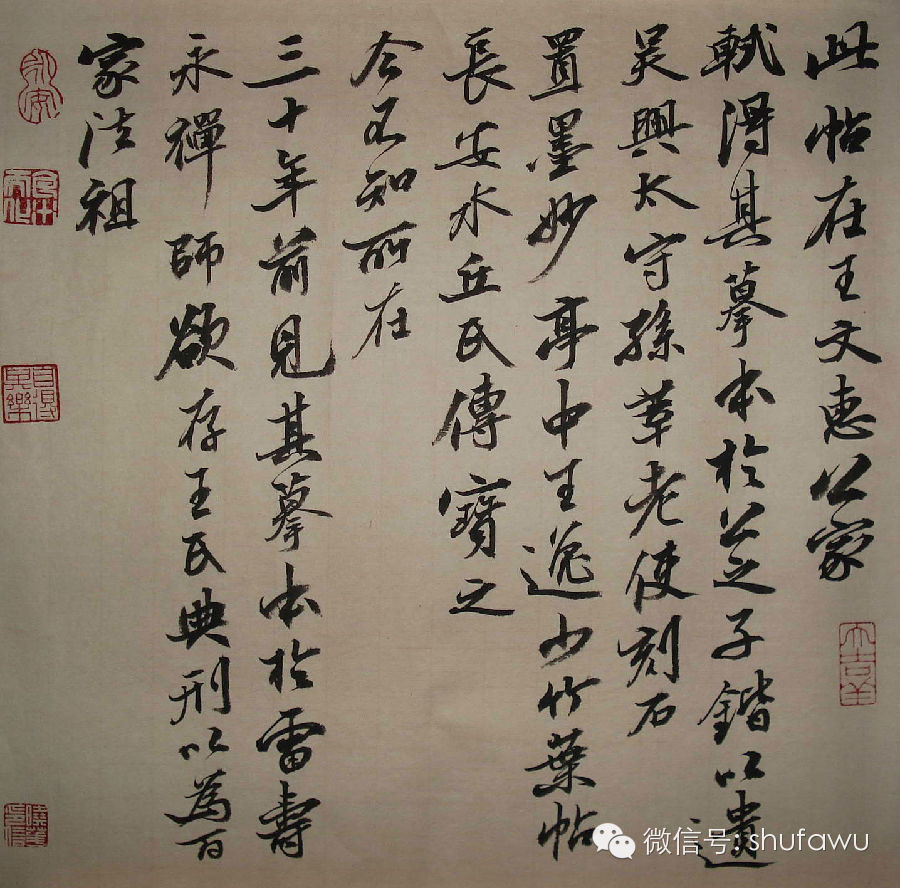 此帖在王文惠公家
軾得其摹本於公之子鍇以遺
吳興太守孫莘老使刻石
置墨妙亭中王逸少竹葉帖
長安水丘氏傳寶之
今不知所在
三十年前見其摹本於雷壽
永禪師欲存王氏典刑以為百
家法祖
大吉羊
微信号: shufawu